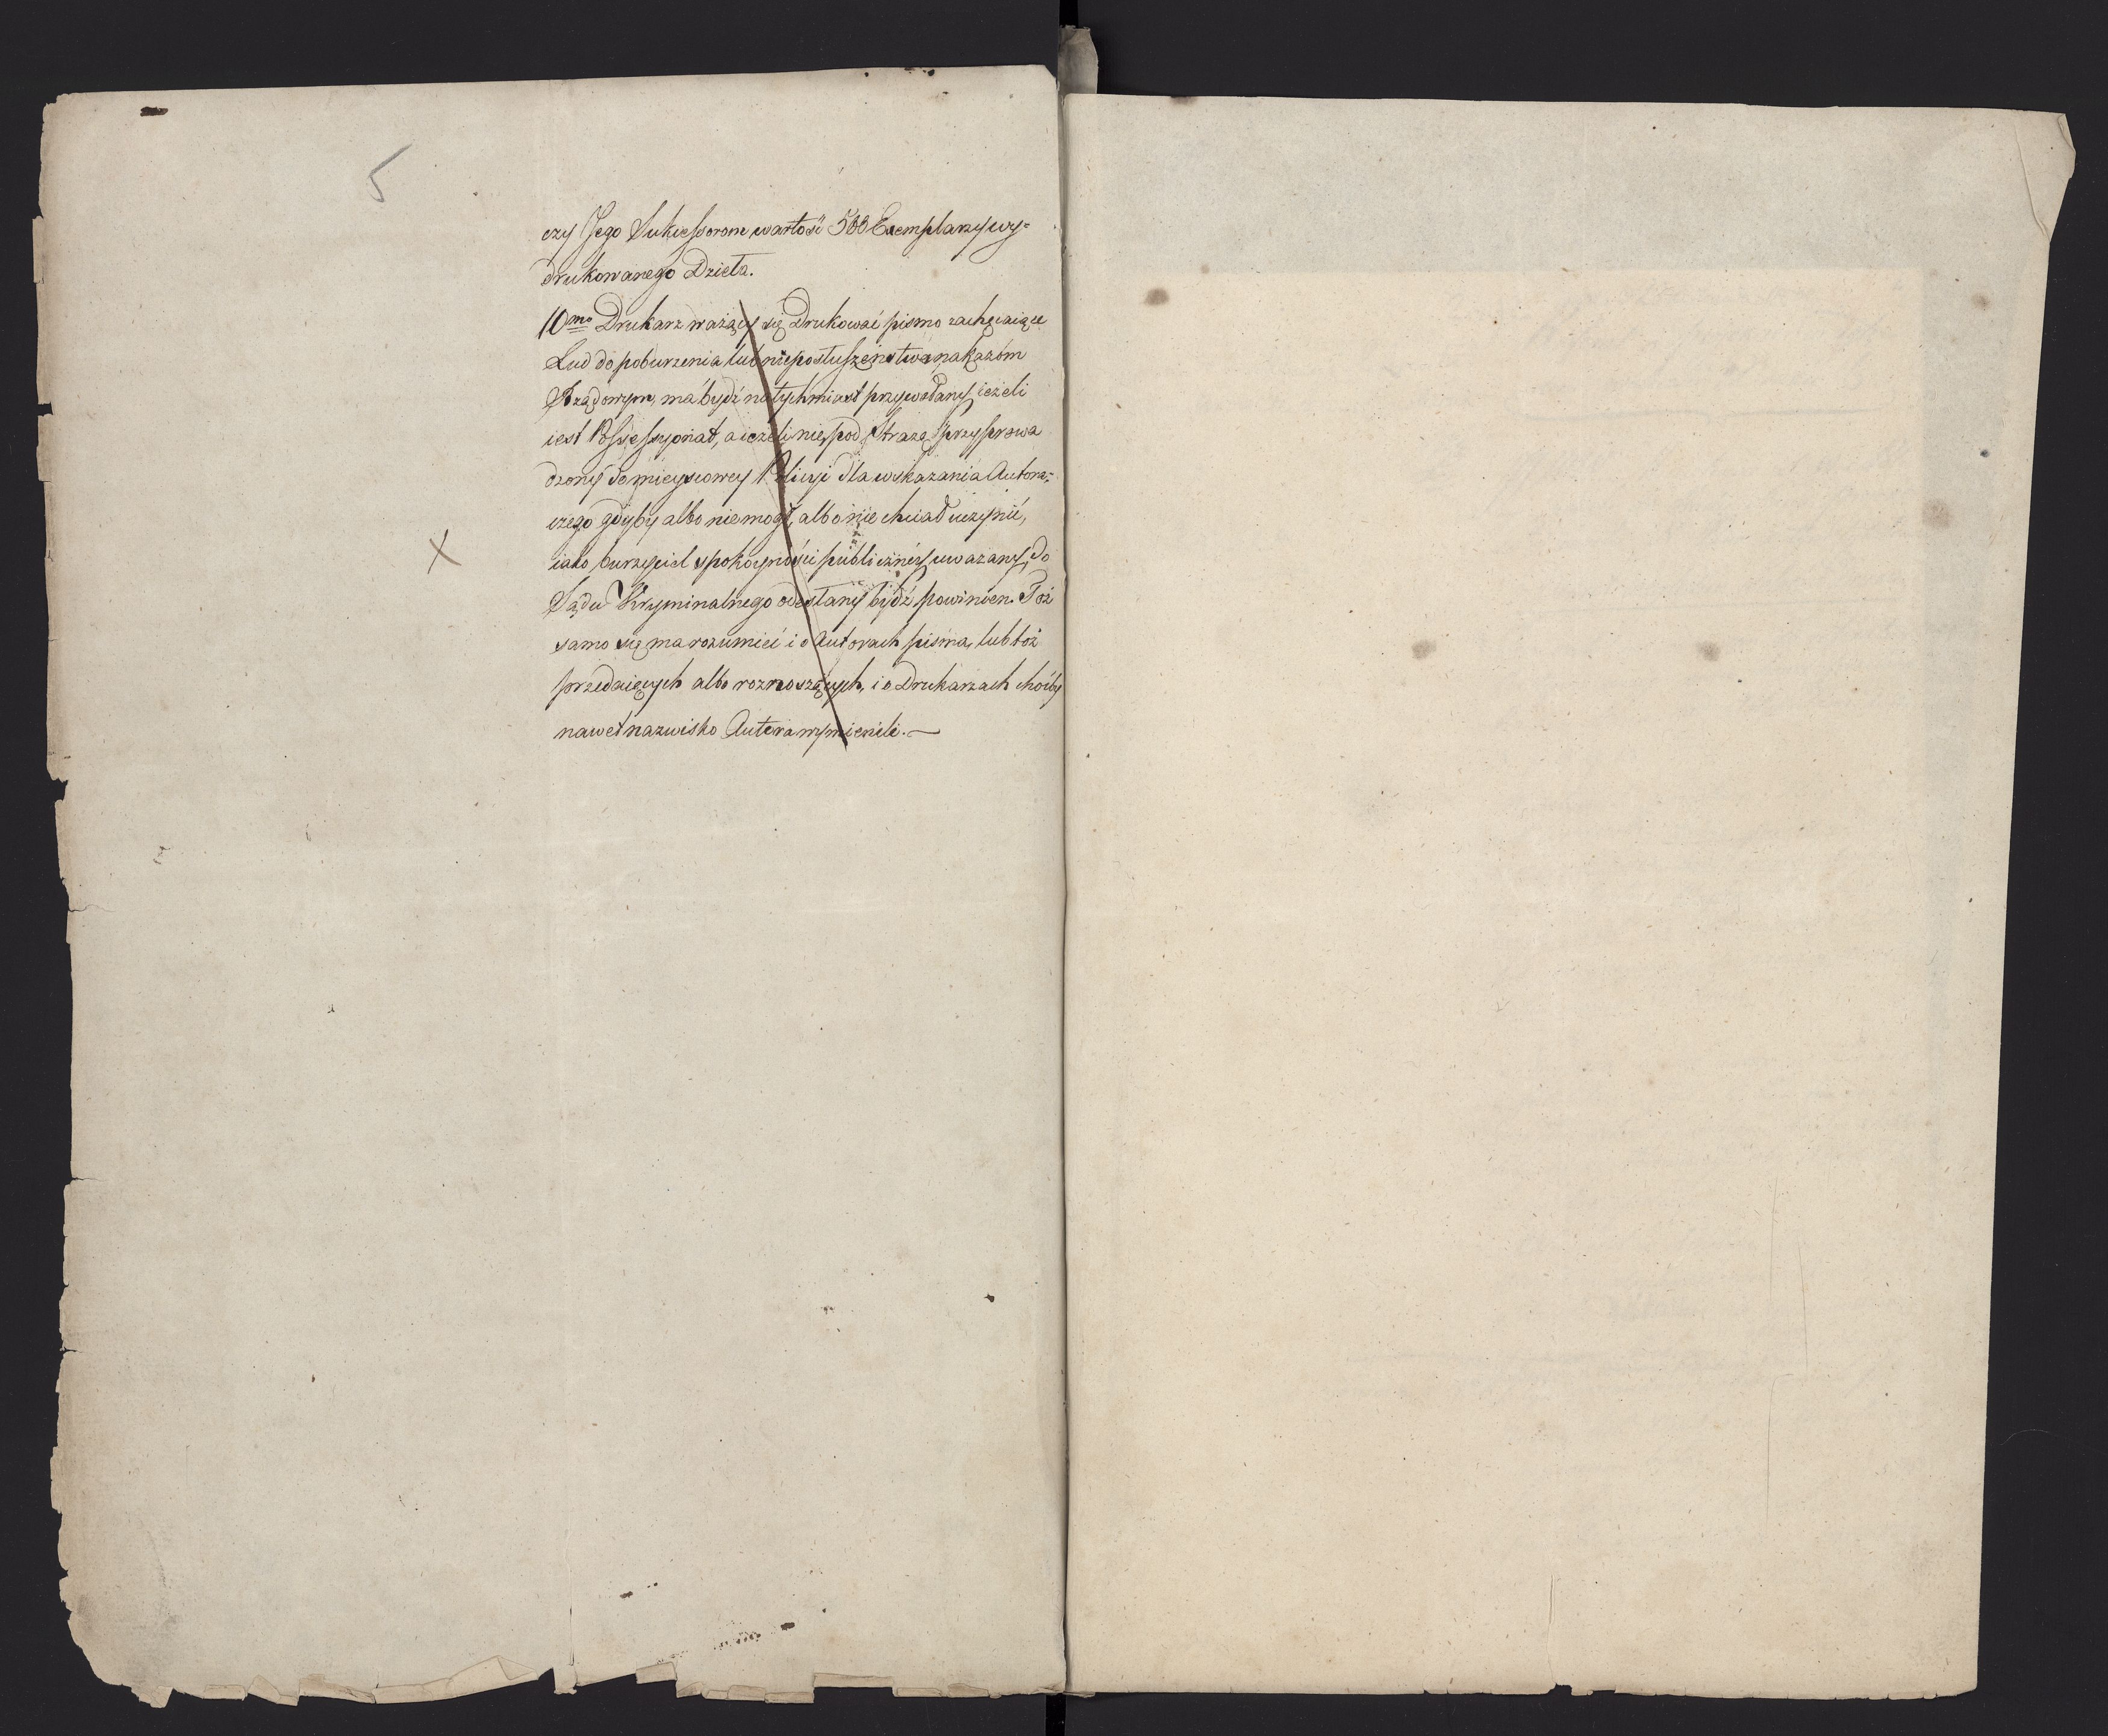 5
czy Jego Sukcessorom wartość 500 Exemplarzy wy=
drukowanego Dzieła.
10mo Drukarz ważący się Drukować pismo zachęcaiące
Lud do poburzenia lub nieposłuszeństwa nakazóm
Rządowym, ma bydź natychmiast przywołany ieżeli
iest Possessyonat, a ieżeli nie, pod Strażą przyprowa
dzony do mieyscowey Policyi dla wskazania Autora,
czego gdyby albo niemogł, albo nie chciał uczynić,
iako burzyciel spokoyności publicznéy uważany, do
Sądu Kryminalnego odesłany bydź powinien. Toż
X
samo się ma rozumieć i o Autorach pisma, lub toż
przedaiących albo roznoszących, i o Drukarzach choćby
nawet nazwisko Autora wymienili.—